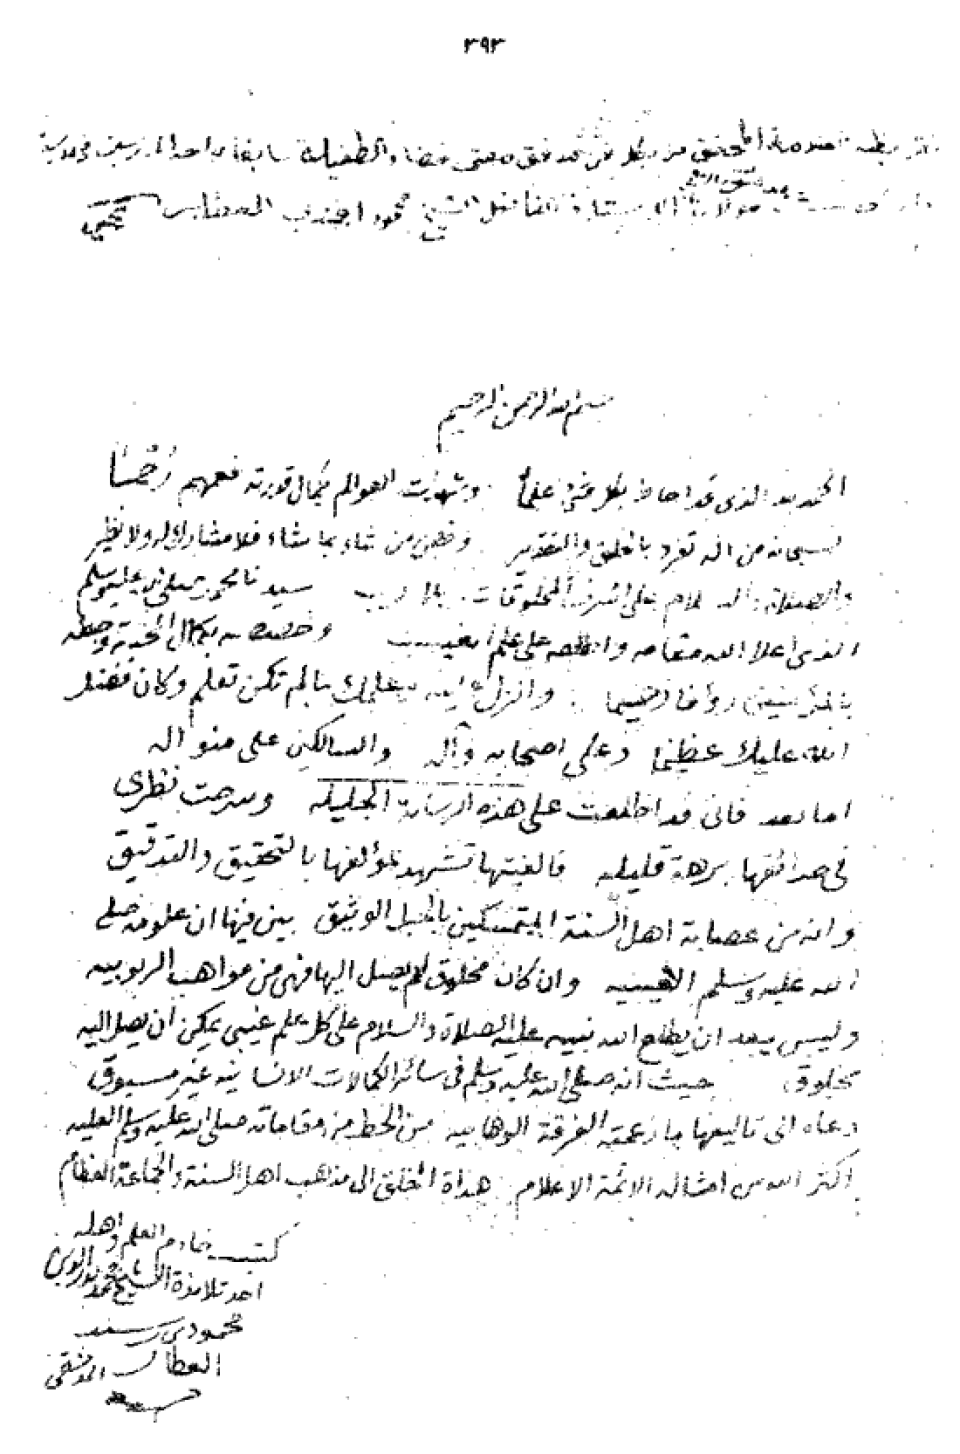 ٣٩٣
المحقق من كل فن مدقق مفتي قضاء الطفيلة سابقا واحد المدرسين في مدرسة
مولانا الاستاذ الفاضل الشيخ محمود افندي العطار
بسم الله الرحمن الرحيم
الحمد لله الذي قد احاط بكل شئ علما وشهدت العوالم بكمال قدرته فعهم رُحْمًا
سبحانه من اله تفرد بالخلق والتقدير وخص من شاء بما شاء فلا مشارك له ولا نظير
والصلاة والسلام على اشرف المخلوقات بلا ريب سيدنا محمد صلى الله عليه وسلم
الذي اعلا الله مقامه واطلعه على علم الغيب وخصصه بكمال المحبة وجعله
بالمؤمنين رؤفا رحيما وانزل عليه وعلمك مالم تكن تعلم وكان فضل
الله عليك عظيما وعلى اصحابه وآله والسالكين على منواله
اما بعد فاني قد اطلعت على هذه الرسالة الجليله وسرحت نظري
في حدائقها برهة قليله فالفيتها تشهد لمؤلفها بالتحقيق والتدقيق
وانه من عصابة اهل السنة المتمسكين بالحبل الوثيق بين فيها ان علومه صلى
الله عليه وسلم الغيبيه وان كان مخلوق لم يصل اليها فهي من مواهب الربوبيه
وليس ببعد ان يطلع الله نبيه عليه الصلاة والسلام على كل علم غيبي يمكن ان يصل اليه
مخلوق حيث انه صلى الله عليه وسلم في سائر الكمالات الانسانيه غير مسبوق
دعاه الى تاليفها ما زعمته الفرقة الوهابيه من الحط من مقاماته صلى الله عليه وسلم العليه
اكثر الله من امثاله الائمة الاعلام هداة الخلق الى مذهب اهل السنة والجماعة العظام
كتبه خادم العلم واهله
احد تلامذة الشيخ محمد بدر الدين
محمود بن رشيد
العطار الدمشقي